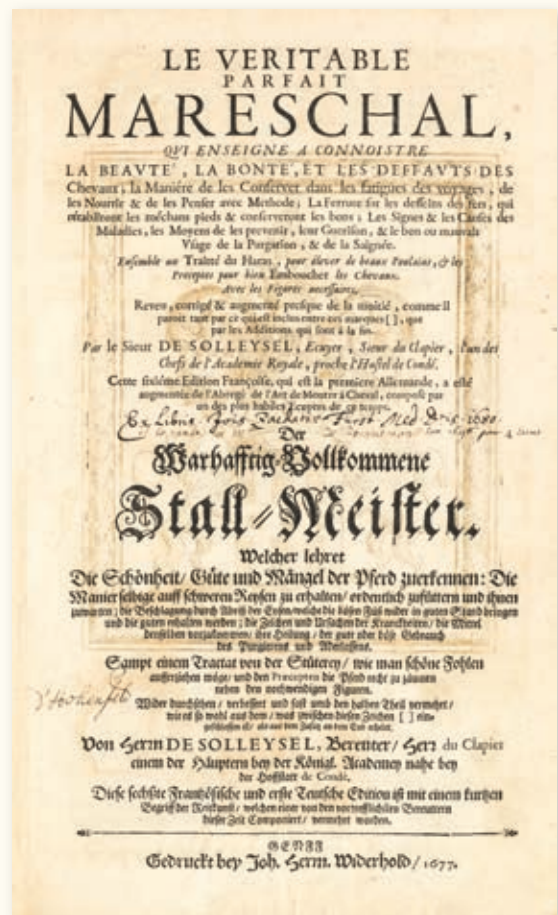 LE VERITABLE
PARFAIT
MARESCHAL,
QUI ENSEIGNE A CONNOISTRE
LA BEAVTE', LA BONTE', ET LES DEFFAVTS DES
Chevaux; la Maniére de les Conserver dans les fatigues des voyages, de
les Nourrir & de les Penser avec Methode; La Ferrure sur les desseins des fers, qui
rétabliront les méchans pieds & conserveront les bons; Les Signes & les Causes des
Maladies, les Moyens de les prevenir, leur Guerison, & le bon ou mauvais
Vsage de la Purgation, & de la Saignée.
Ensemble un Traitté du Haras, pour élever de beaux Poulains, & les
Preceptes pour bien Emboucher les Chevaux.
Avec les Figures necessaires.
Reveu, corrigé & augmenté presque de la moitié, comme il
paroit tant par ce qui est inclus entre ces marques [ ], que
par les Additions qui sont à la fin.
Par le Sieur DE SOLLEYSEL, Ecuyer, Sieur du Clapier, l'un des
Chefs de l'Academie Royale, proche l'Hostel de Condé.
Cette sixiéme Edition Françoise, qui est la premiere Allemande, a esté
augmentée de l'Abregé de l'Art de Monter à Cheval, composé par
un des plus habiles Ecuyers de ce temps.
Ex Libris 1680.
Der
Warhafftig-Vollkommene
Stall-Meister.
Welcher lehret
Die Schönheit/ Güte und Mängel der Pferd zuerkennen: Die
Manier selbige auff schweren Reysen zu erhalten/ ordentlich zufüttern und ihnen
zuwarten; die Beschlagung durch Abriß der Eysen/ welche die bösen Füß wider in guten Stand bringen
und die guten erhalten werden; die Zeichen und Ursachen der Kranckheiten/ die Mittel
denselben vorzukommen/ ihre Heilung/ der gute oder böse Gebrauch
des Purgierens und Aderlassens.
Sampt einem Tractat von der Stüterey/ wie man schöne Fohlen
aufferziehen möge/ und den Precepten die Pferd recht zu zäumen
neben den nothwendigen Figuren.
Wider durchsehen/ verbessert und fast umb den halben Theil vermehrt/
wie es so wohl aus dem/ was zwischen diesen Zeichen [ ] ein-
geschlossen ist/ als aus dem Zusatz an dem End erhellt.
Von Herrn DE SOLLEYSEL, Bereuter/ Herr du Clapier
einem der Häuptern bey der Königl. Academey nahe bey
der Hoffstatt de Condé.
Diese sechste Frantzösische und erste Teutsche Edition ist mit einem kurtzen
Begriff der Reitkunst/ welchen einer von den vortrefflichsten Bereutern
dieser Zeit Componiert/ vermehrt worden.
GENFF
Gedruckt bey Joh. Herm. Widerhold/ 1677.